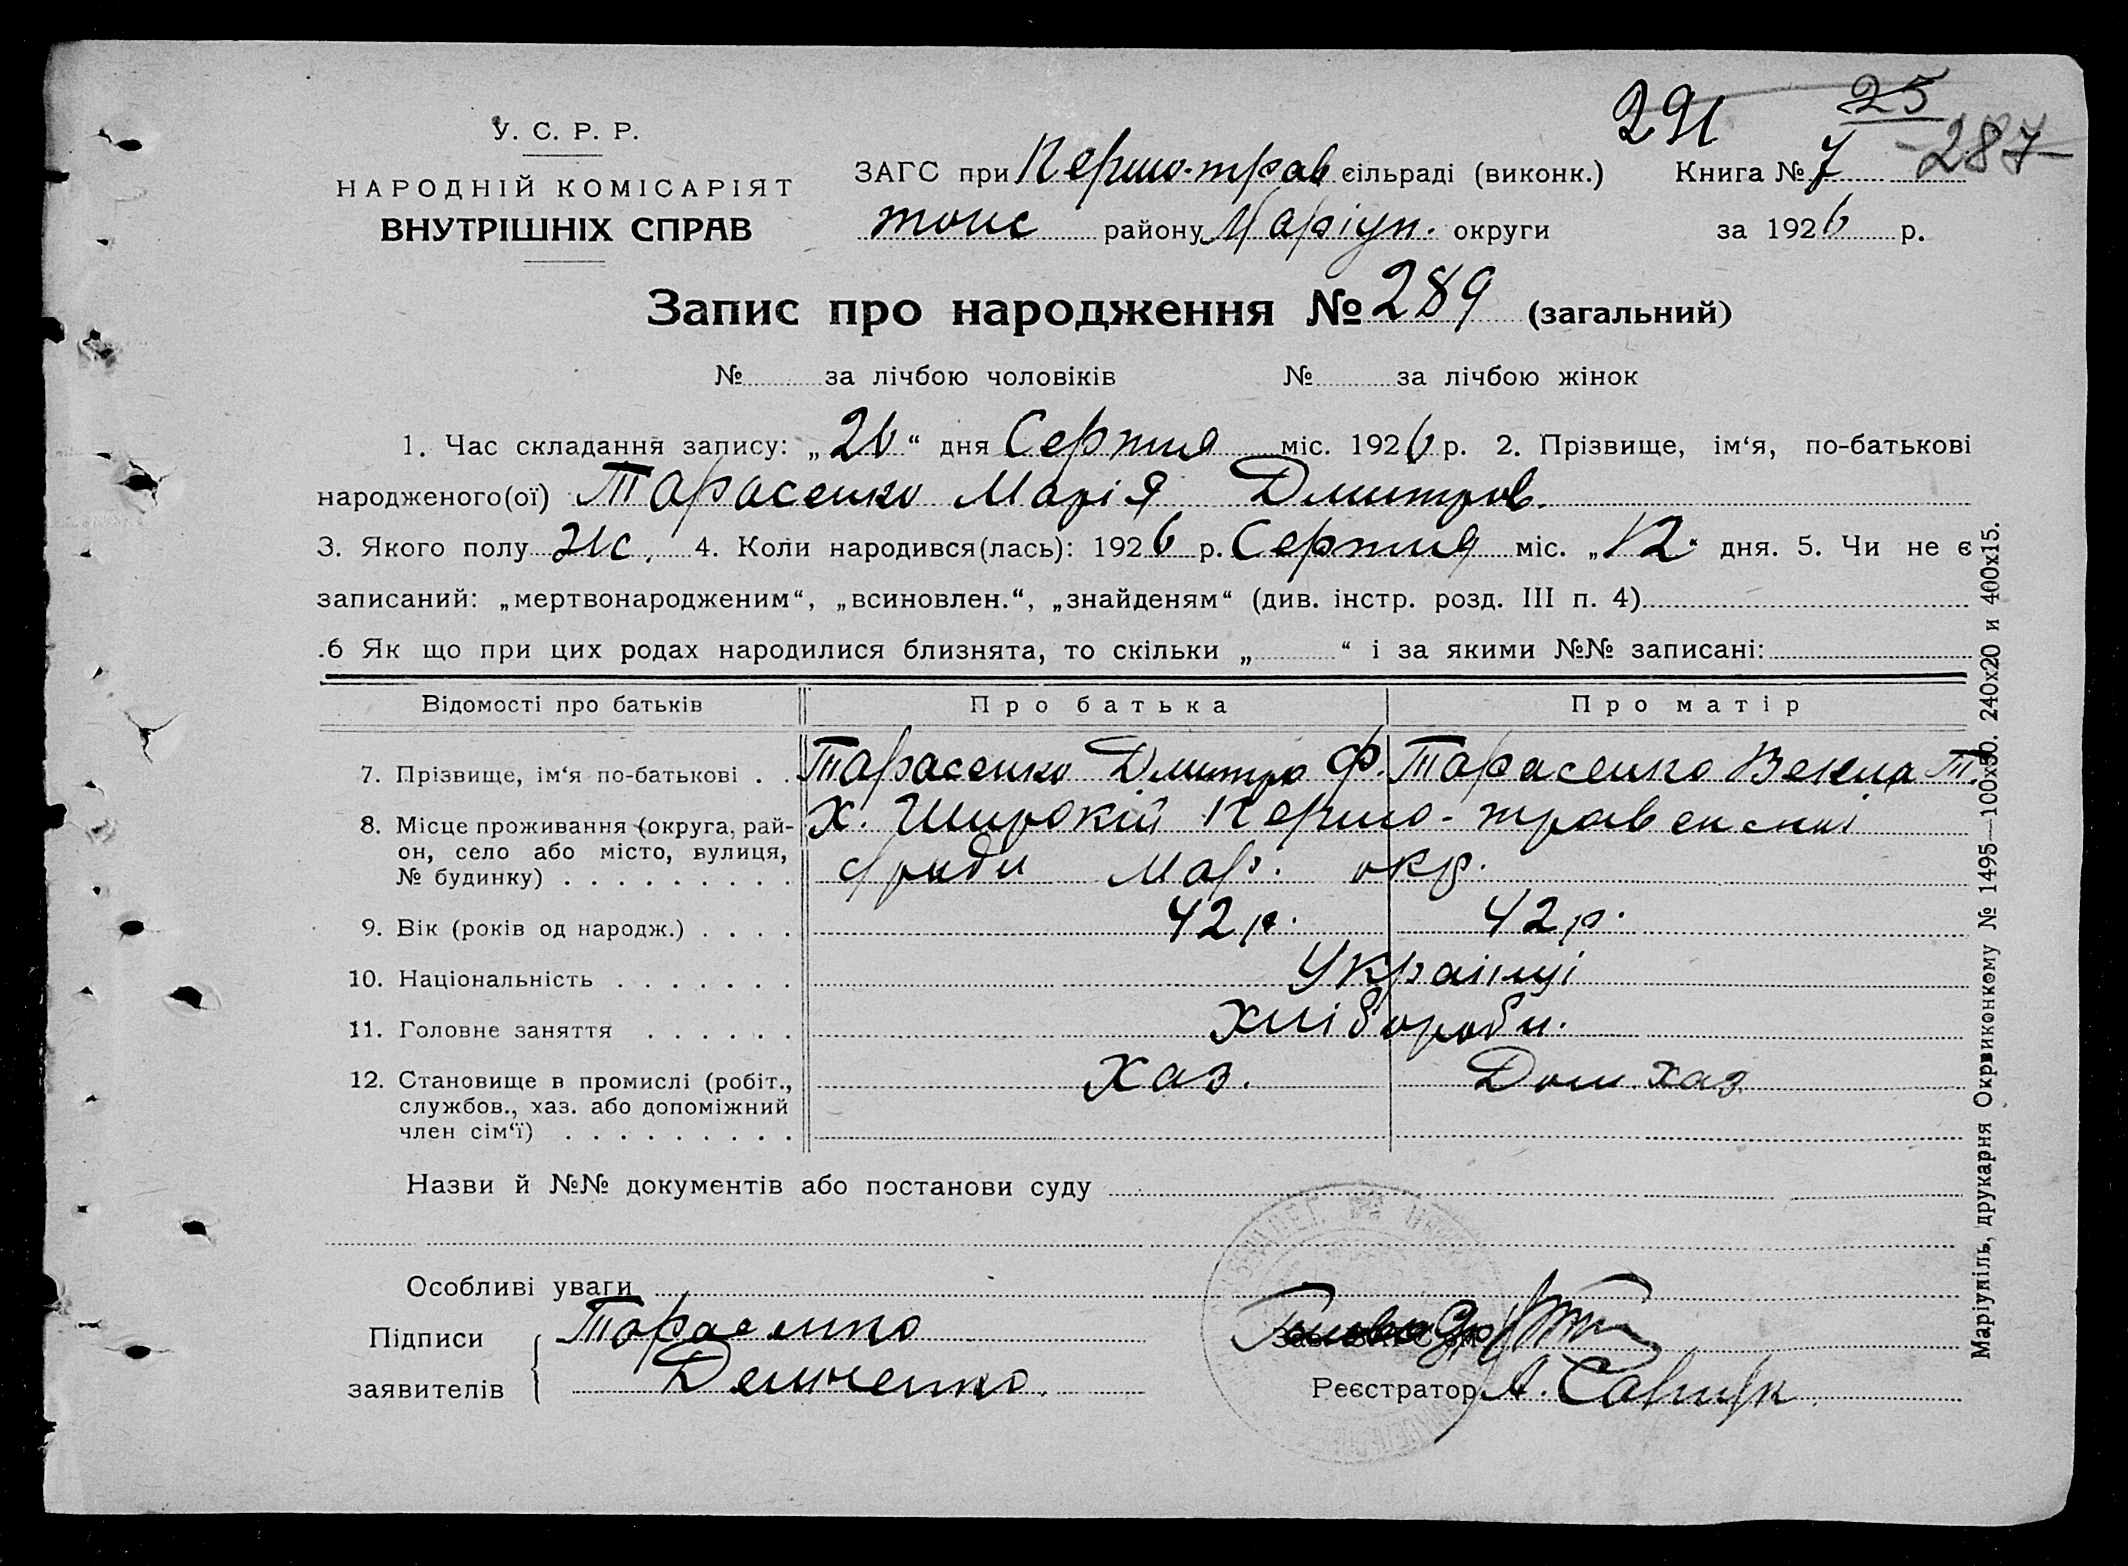 291 25
287
У. С. Р. Р.
НАРОДНІЙ КОМІСАРІЯТ
ВНУТРІШНІХ СПРАВ
ЗАГС при Першо-трав сільраді (виконк.) Книга № 7
тоис району Маріуп. округи за 1926 р.
Запис про народження № 289 (загальний)
№ за лічбою чоловіків № за лічбою жінок
1. Час складання запису: „26“ дня Серпня міс. 1926 р. 2. Прізвище, ім‘я, по-батькові
народженого(ої) Тарасенко Марія Дмитров.
3. Якого полу жс. 4. Коли народився(лась): 1926 р. Серпня міс. „12“ дня. 5. Чи не є
записаний: „мертвонародженим“, „всиновлен.“, „знайденям“ (див. інстр. розд. III п. 4)
.6 Як що при цих родах народилися близнята, то скільки „ “ і за якими №№ записані:
Відомості про батьків Про батька Про матір
7. Прізвище, ім‘я по-батькові . . Тарасенко Дмитро Ф. Тарасенко Векла Т.
8. Місце проживання (округа, рай-
он, село або місто, вулиця,
№ будинку) . . . . . . . . .
х. Широкій Першо-травенской
Мар. окр.
9. Вік (років од народж.) . . . . 42 р. 42 р.
10. Національність . . . . . . . Українці
11. Головне заняття . . . . . . Хліборобы.
12. Становище в промислі (робіт.,
службов., хаз. або допоміжний
член сім‘ї) . . . . . . . . .
Хаз. Дом. хаз.
Назви й №№ документів або постанови суду
Особливі уваги
Підписи
заявителів
Тарасенко
Демченко.
Голова
Реєстратор А.
Маріупіль, друкарня Окрвиконкому № 1495—100х50. 240х20 и 400х15.